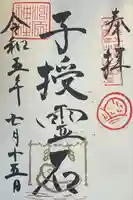 奉拝
子授霊石
令和五年
七月十五日